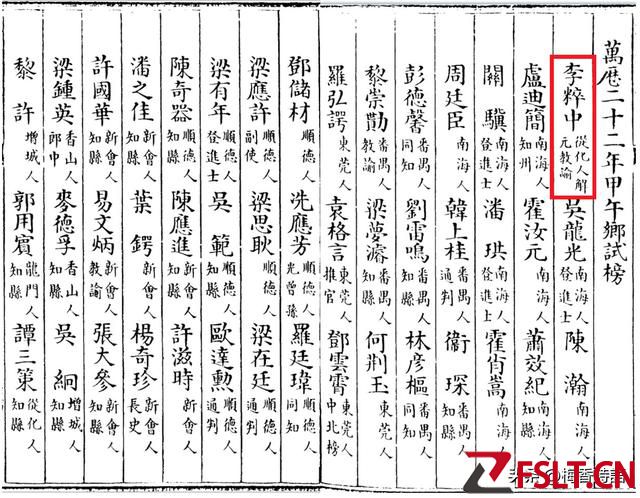 萬曆二十二年甲午鄉試榜
李粹中 從化人解元教諭 吳龍光 南海人登進士 陳瀚 南海人
盧迪簡 南海人知州 霍汝元 南海人 蕭效紀 南海人知縣
關驥 南海人登進士 潘珙 南海人登進士 霍肖嵩 南海人
周廷臣 南海人 韓上桂 番禺人通判 衞琛 番禺人知縣
彭德馨 番禺人同知 劉雷鳴 番禺人知縣 林彥樞 番禺人同知
黎崇勛 番禺人教諭 梁夢 番禺人知縣 何荆玉 番禺人
羅弘諤 東莞人 袁格言 東莞人推官 鄧雲霄 東莞人中北榜
鄧儲材 順德人 冼應芳 順德人光曾孫 羅廷瑋 順德人同知
梁應許 順德人副使 梁思耿 順德人 梁在廷 順德人通判
梁有年 順德人登進士 吳範 順德人 歐達勳 順德人通判
陳奇器 新會人知縣 陳應進 新會人知縣 許滋時 新會人
潘之佳 新會人知縣 葉鍔 新會人 楊奇珍 新會人長史
許國華 新會人知縣 易文炳 新會人教諭 張大參 新會人知縣
梁鍾英 香山人郎中 麥德孚 香山人知縣 吳絅 增城人知縣
黎許 增城人 郭用賓 龍門人知縣 譚三策 從化人知縣
FSLT.CN